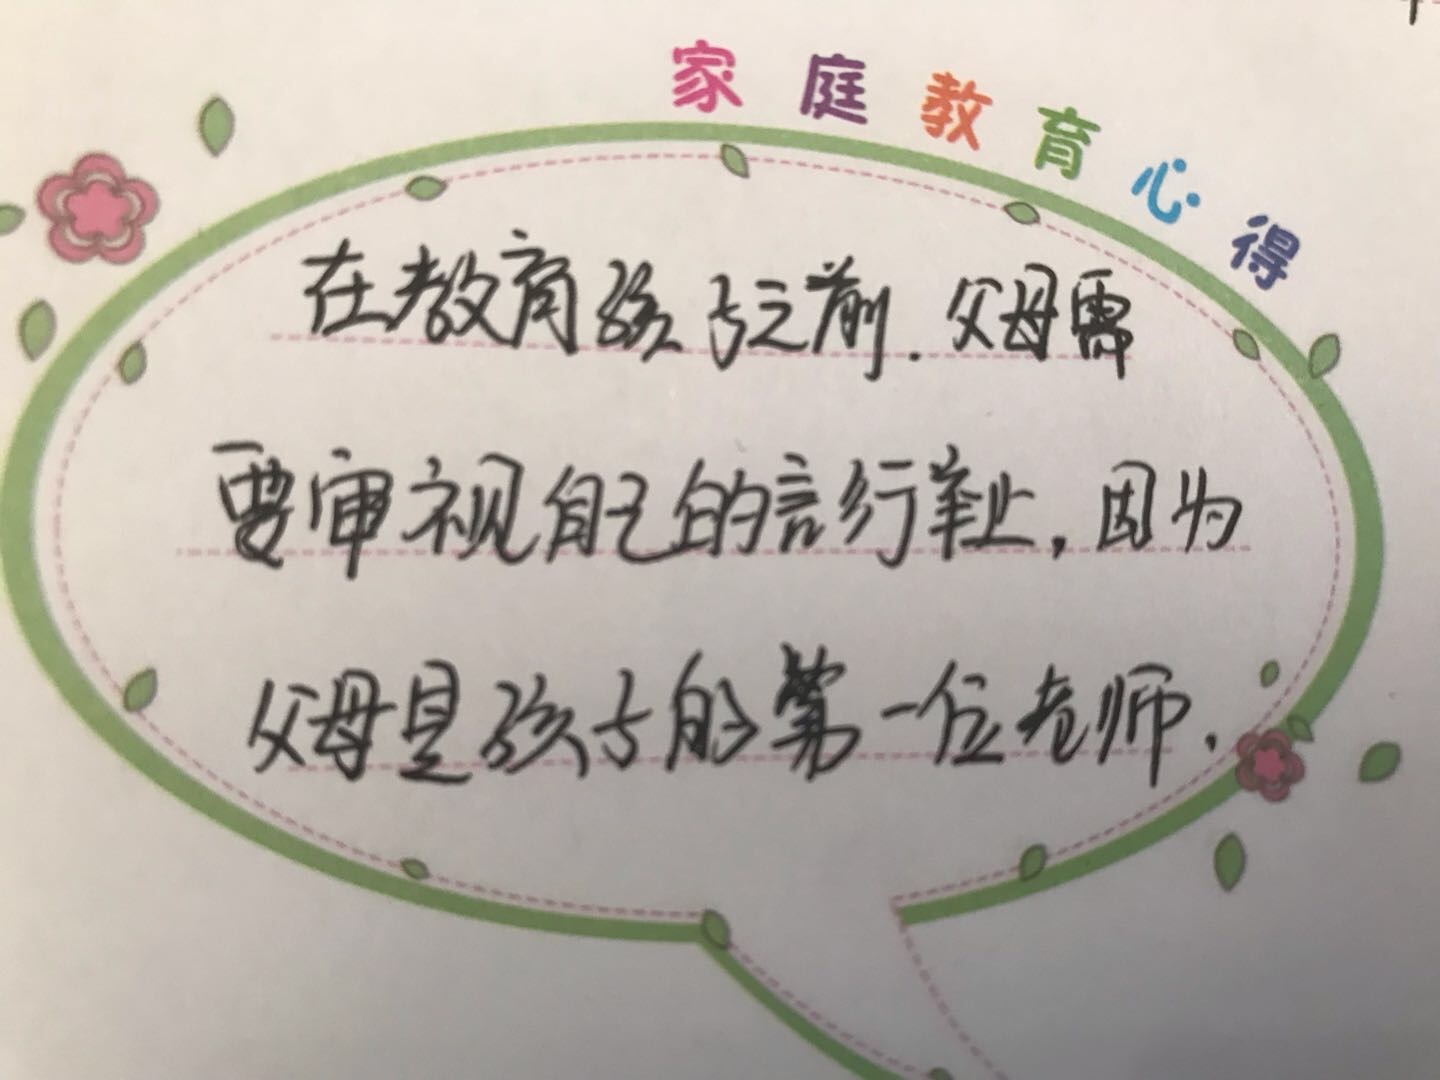 家庭教育心得
在教育孩子之前.父母需
要审视自己的言行举止,因为
父母是孩子的第一位老师.